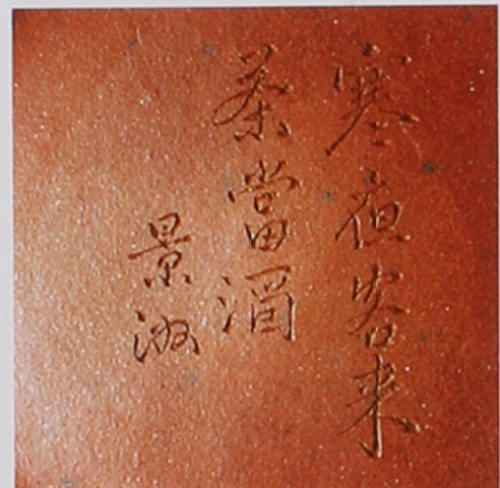 寒夜客来
茶當酒
景洲